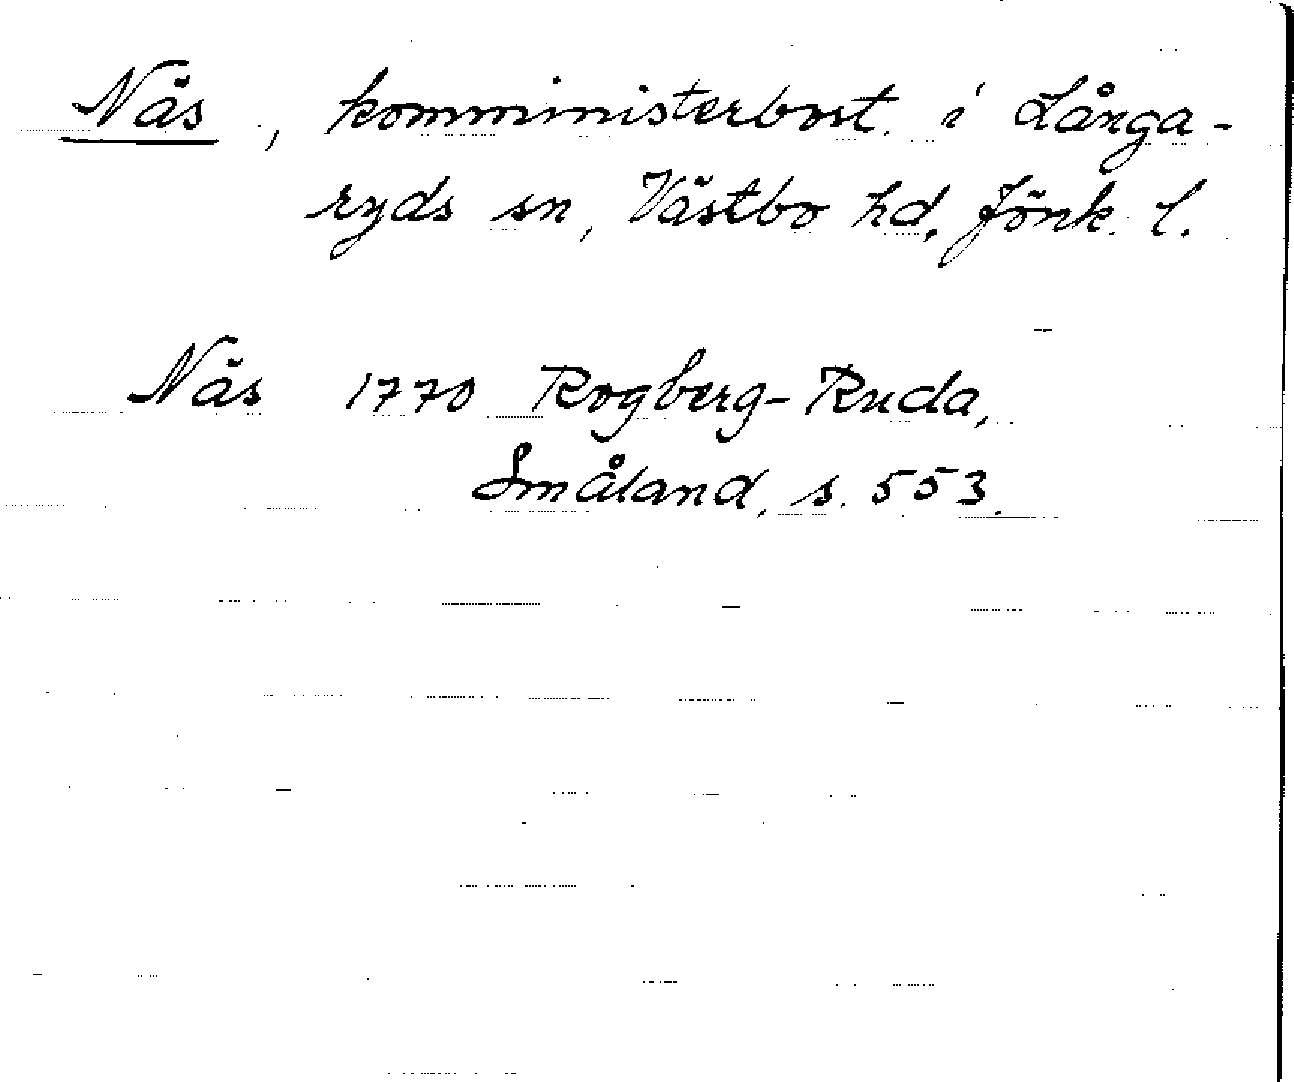 Näs, komministerbost. i Långa-
ryds sn, Västbo hd, Jönk. l.
Näs 1770 Rogberg-Ruda,
Småland, s. 553.